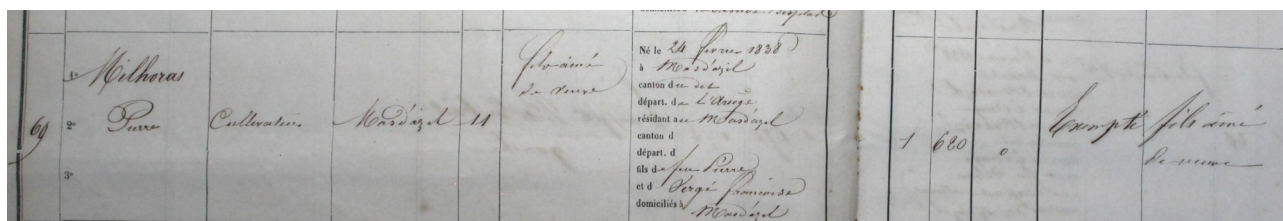 69
1º Milhoras
2º Pierre
3º
Cultivateur
Masdazil
11
fils ainé
de veuve
Né le 24 février 1838
à Masdazil
canton du dit
départ. de L'Ariège
résidant au Masdazil
canton d
départ. d
fils de feu Pierre
et d Vergé françoise
domiciliés à Masdazil
1
620
0
Exempté fils ainé
de veuve